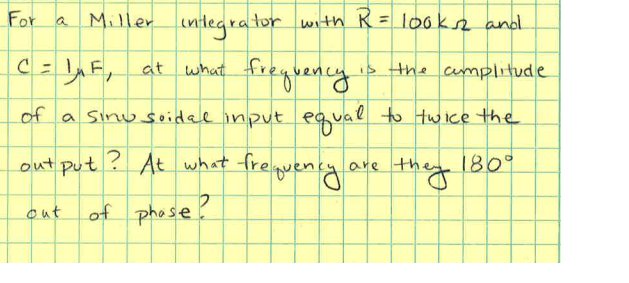 For a Miller integrator with R = 100kΩ and
C = 1μF, at what frequency is the amplitude
of a sinusoidal input equal to twice the
output? At what frequency are they 180°
out of phase?